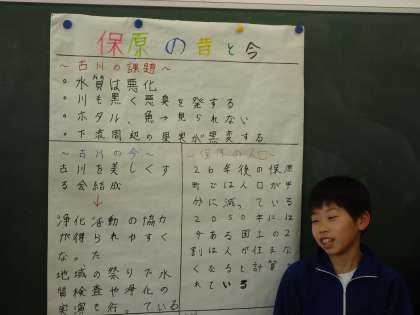 保原の昔と今
～古川の課題～
・水質は悪化
・川も黒く悪臭を発する
・ホタル、魚→見られない
・下流周辺の果実が黒変する
～古川の今～
古川を美しくす
る会結成
↓
浄化活動の協力
が得られやすく
なった
地域の祭りで水
質検査や浄化の
実演を行っている
～保原の人口～
26年後の保原
町では人口が半
分に減っている
2050年には
今ある国土の2
割は人が住まな
くなると計算さ
れている